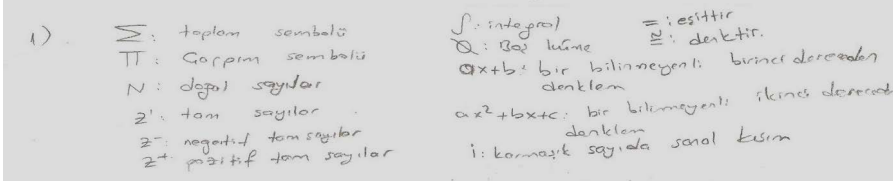 1)
Σ: toplam sembolü
Π: Çarpım sembolü
N: doğal sayılar
z': tam sayılar
z⁻: negatif tam sayılar
z⁺: pozitif tam sayılar
∫: integral
Q: Boş küme
ax+b: bir bilinmeyenli birinci dereceden
denklem
ax²+bx+c: bir bilinmeyenli ikinci dereceden
denklem
i: karmaşık sayıda sanal kısım
=: eşittir
≅: denktir.